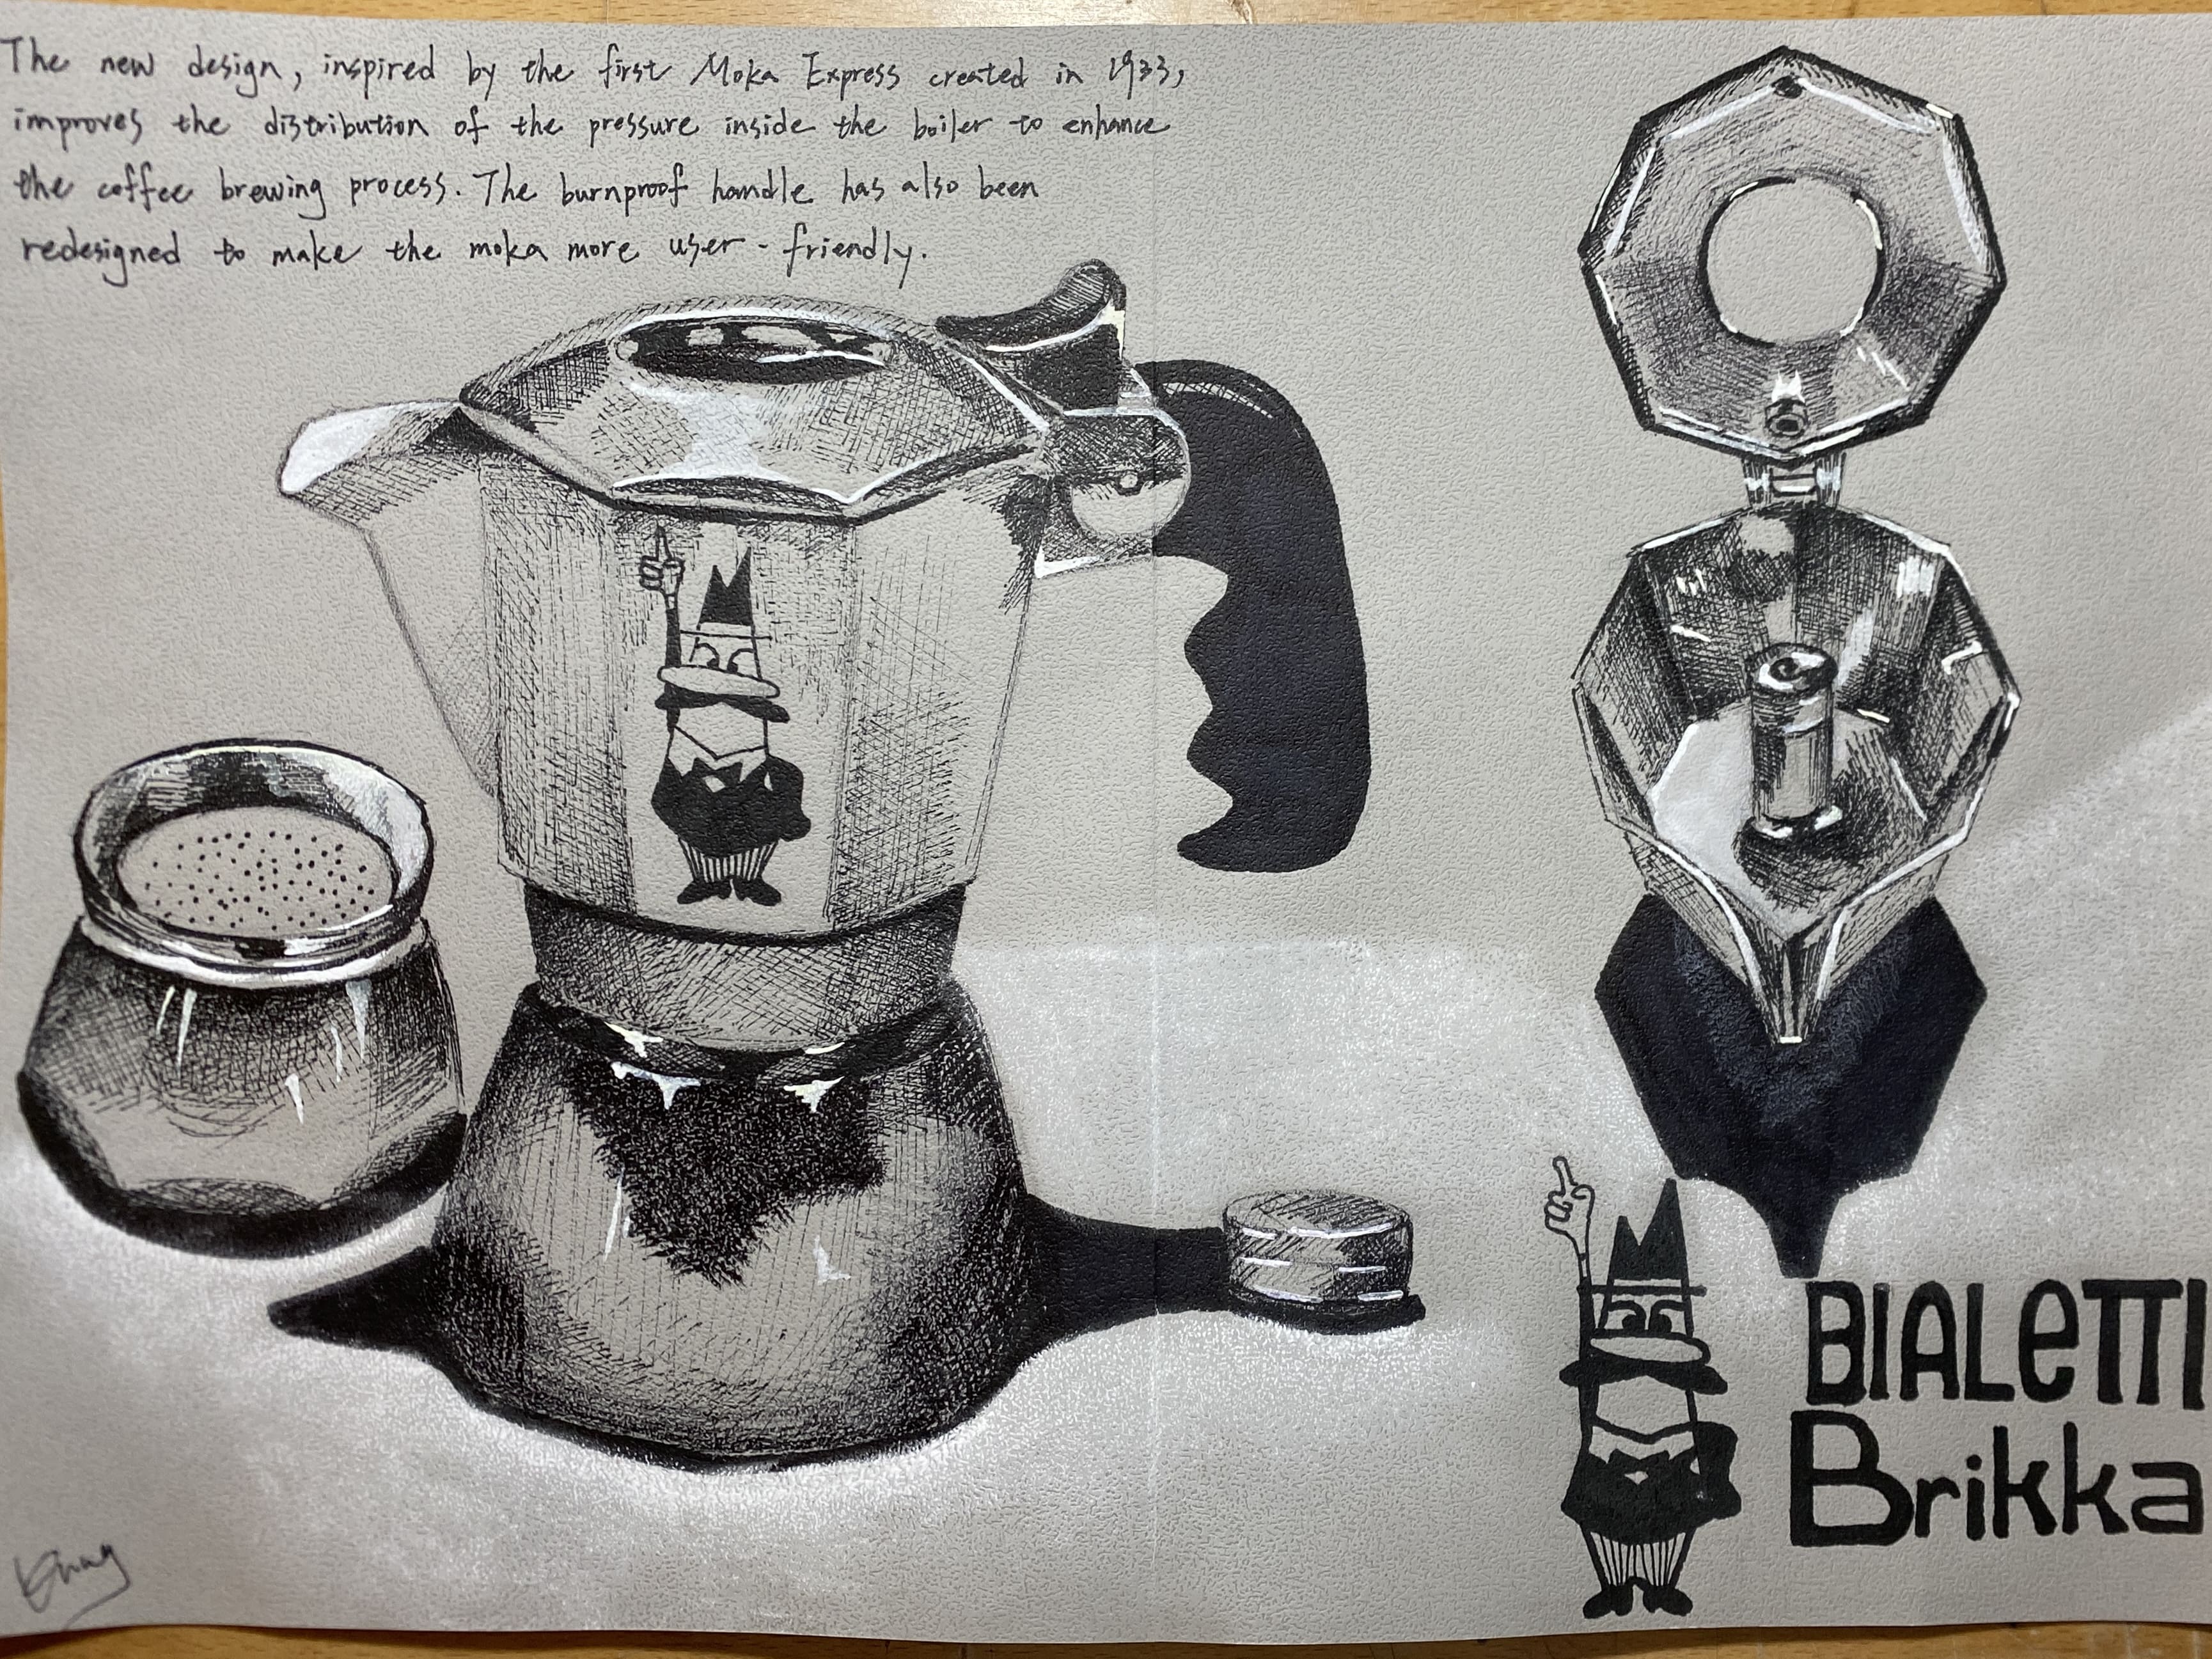 The new design, inspired by the first Moka Express created in 1933,
improves the distribution of the pressure inside the boiler to enhance
the coffee brewing process. The burnproof handle has also been
redesigned to make the moka more user-friendly.
BIALeTTI
Brikka